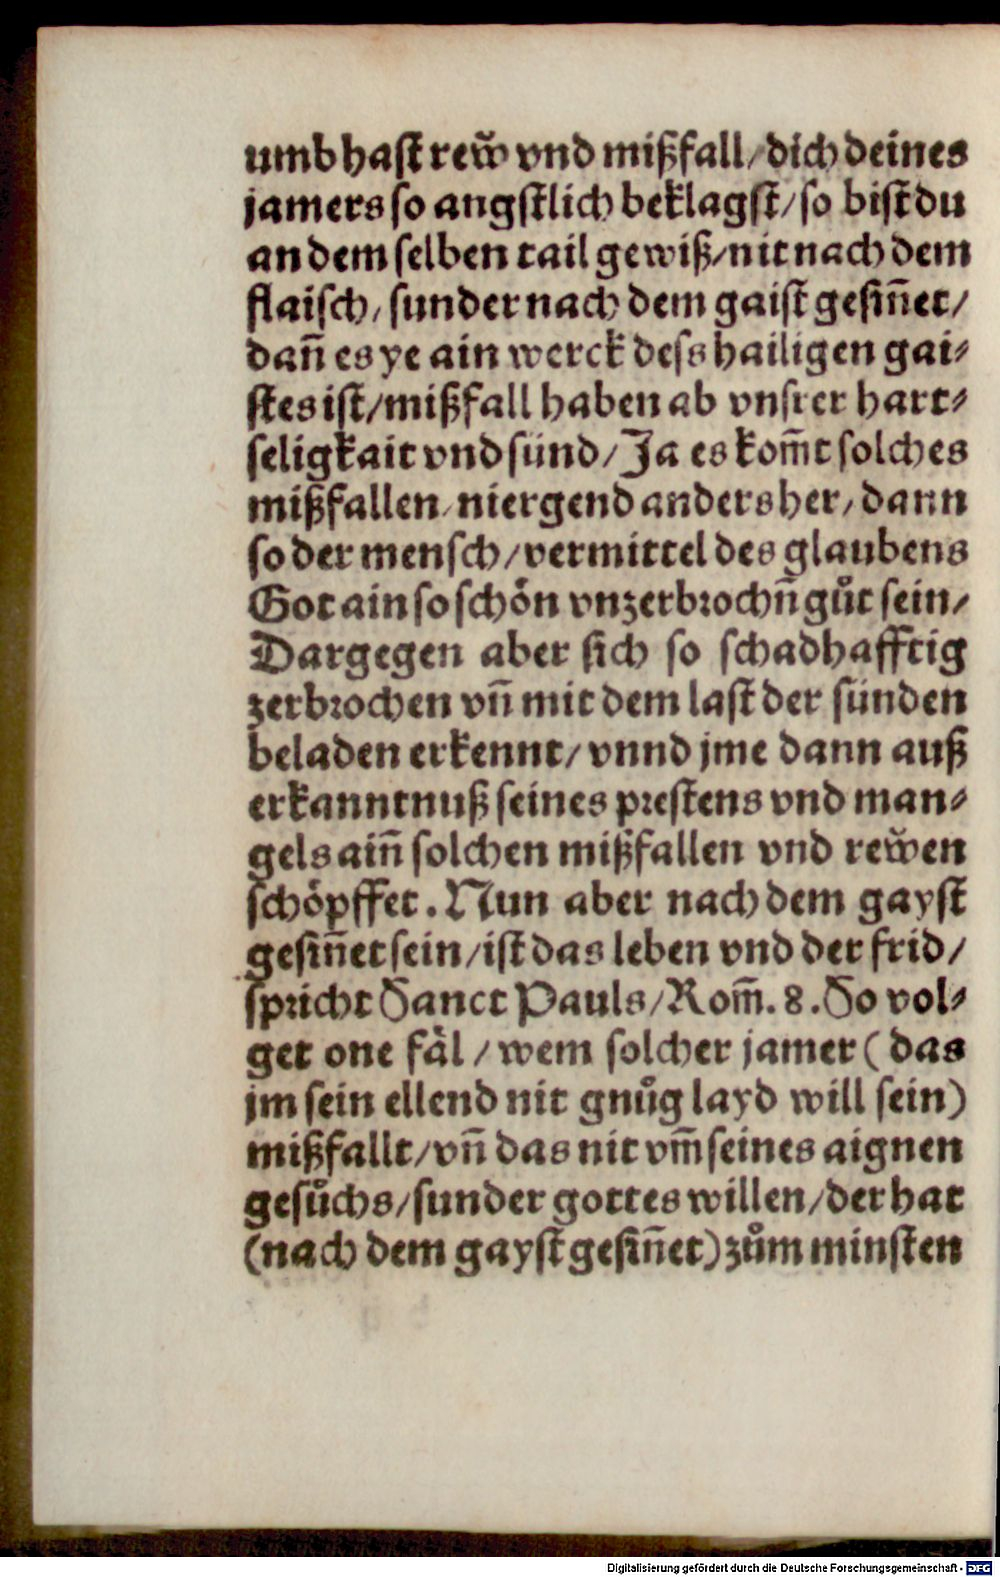 umb hast rew̆ vnd mißfall / dich deines
jamers so angstlich beklagst / so bist du
an dem selben tail gewiß / nit nach dem
flaisch / sunder nach dem gaist gesiñet /
dañ es ye ain werck dess hailigen gai⸗
stes ist / mißfall haben ab vnsrer hart⸗
seligkait vnd sünd / Ja es kom̃t solches
mißfallen / niergend anders her / dann
so der mensch / vermittel des glaubens
Got ain so schoͤn vnzerbrochñ guͦt sein /
Dargegen aber sich so schadhafftig
zerbrochen vñ mit dem last der sünden
beladen erkennt / vnnd jme dann auß
erkanntnuß seines prestens vnd man⸗
gels aiñ solchen mißfallen vnd rew̆en
schoͤpffet. Nun aber nach dem gayst
gesiñet sein / ist das leben vnd der frid /
spricht Sanct Pauls / Rom̃. 8. So vol⸗
get one faͤl / wem solcher jamer ( das
jm sein ellend nit gnuͦg layd will sein)
mißfallt / vñ das nit vm̃ seines aignen
gesuͦchs / sunder gottes willen / der hat
(nach dem gayst gesiñet) zuͦm minsten
Digitalisierung gefördert durch die Deutsche Forschungsgemeinschaft - DFG